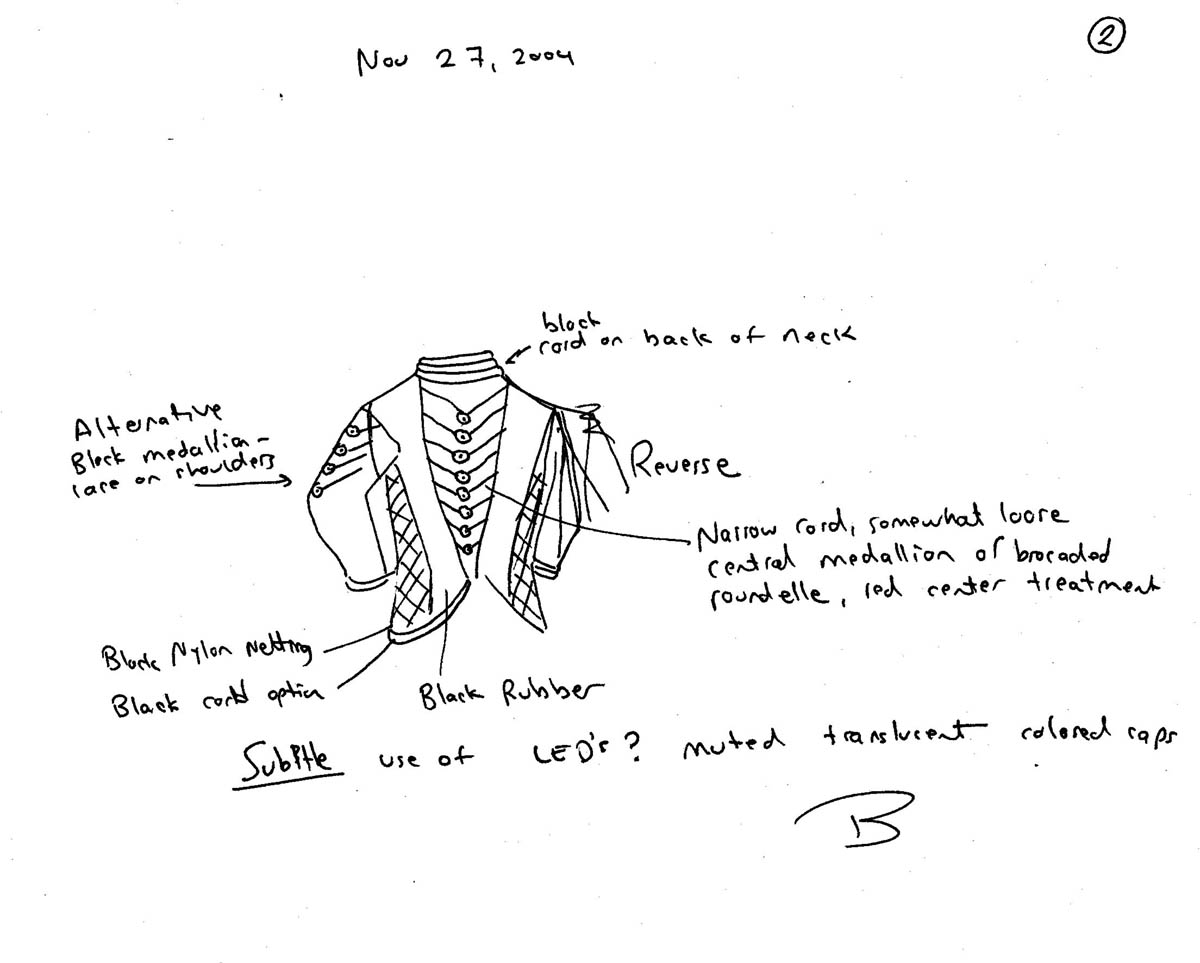 2
Nov 27, 2004
black
cord on back of neck
Alternative
Black medallion -
lace on shoulders
Reverse
Narrow cord, somewhat loose
central medallion of brocaded
roundelle, red center treatment
Black Nylon Netting
Black cord option
Black Rubber
Subtle use of LED's? muted translucent colored caps
B